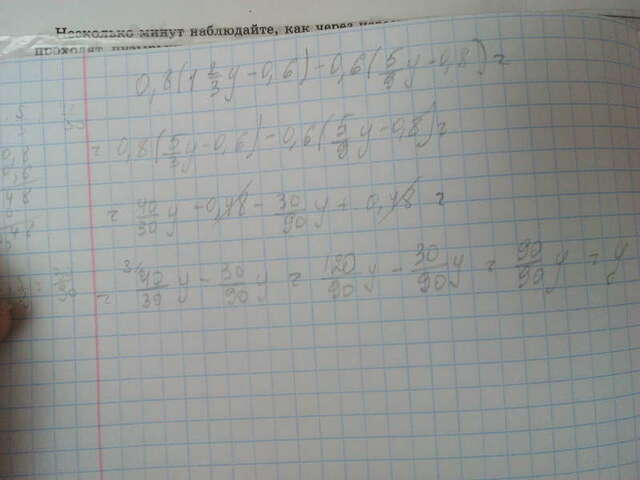 Несколько минут наблюдайте, как через
проходят
0,8(1 2/3 y - 0,6) - 0,6(5/9 y - 0,8) =
= 0,8(5/3 y - 0,6) - 0,6(5/9 y - 0,8) =
= 40/30 y - 0,48 - 30/90 y + 0,48 =
= 40/30 y - 30/90 y = 120/90 y - 30/90 y = 90/90 y = y